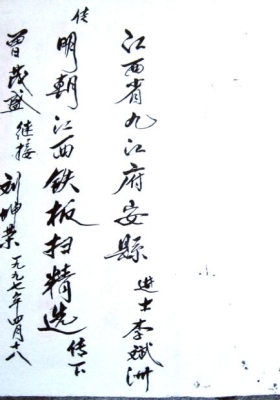 江西省九江府安縣
进士李斌洲
传
明朝江西铁板扫精选传下
曾茂盛继接
刘坤荣一九九七年四月十八